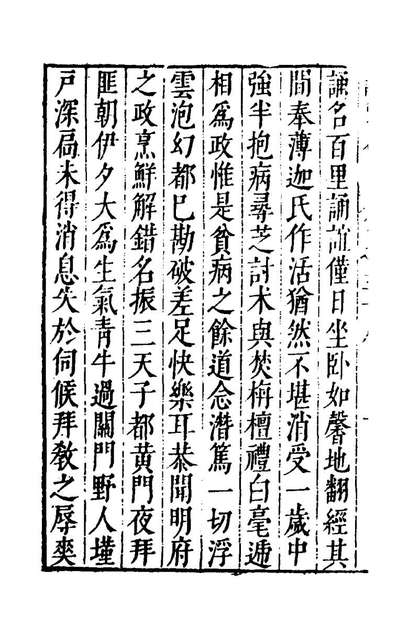 謙名百里誦讀僅日坐卧如馨地翻經其
間奉薄迦氏作活猶然不堪消受一歲中
強半抱病尋芝討术與焚栴檀禮白毫遞
相爲政惟是貧病之餘道念潛篤一切浮
雲泡幻都已勘破差足快樂耳恭聞明府
之政烹鮮解錯名振三天子都黃門夜拜
匪朝伊夕大爲生氣青牛過關門野人墐
戸深扃未得消息失於伺候拜敎之辱爽